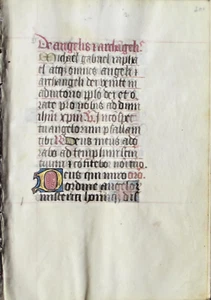 De angelis et archangelis
Michael gabriel rapha
el atque omnes angeli et
archangeli dei venite in
adiutorio populo dei et o
rate pro nobis ad dominum
ihesum xpum V In conspec
tu angelorum psallam
tibi R Deus meus ado
rabo ad templum sanc
tuum et confitebor nomino
Deus qui miro oro
ordine angelorum
ministeria hominumque dis